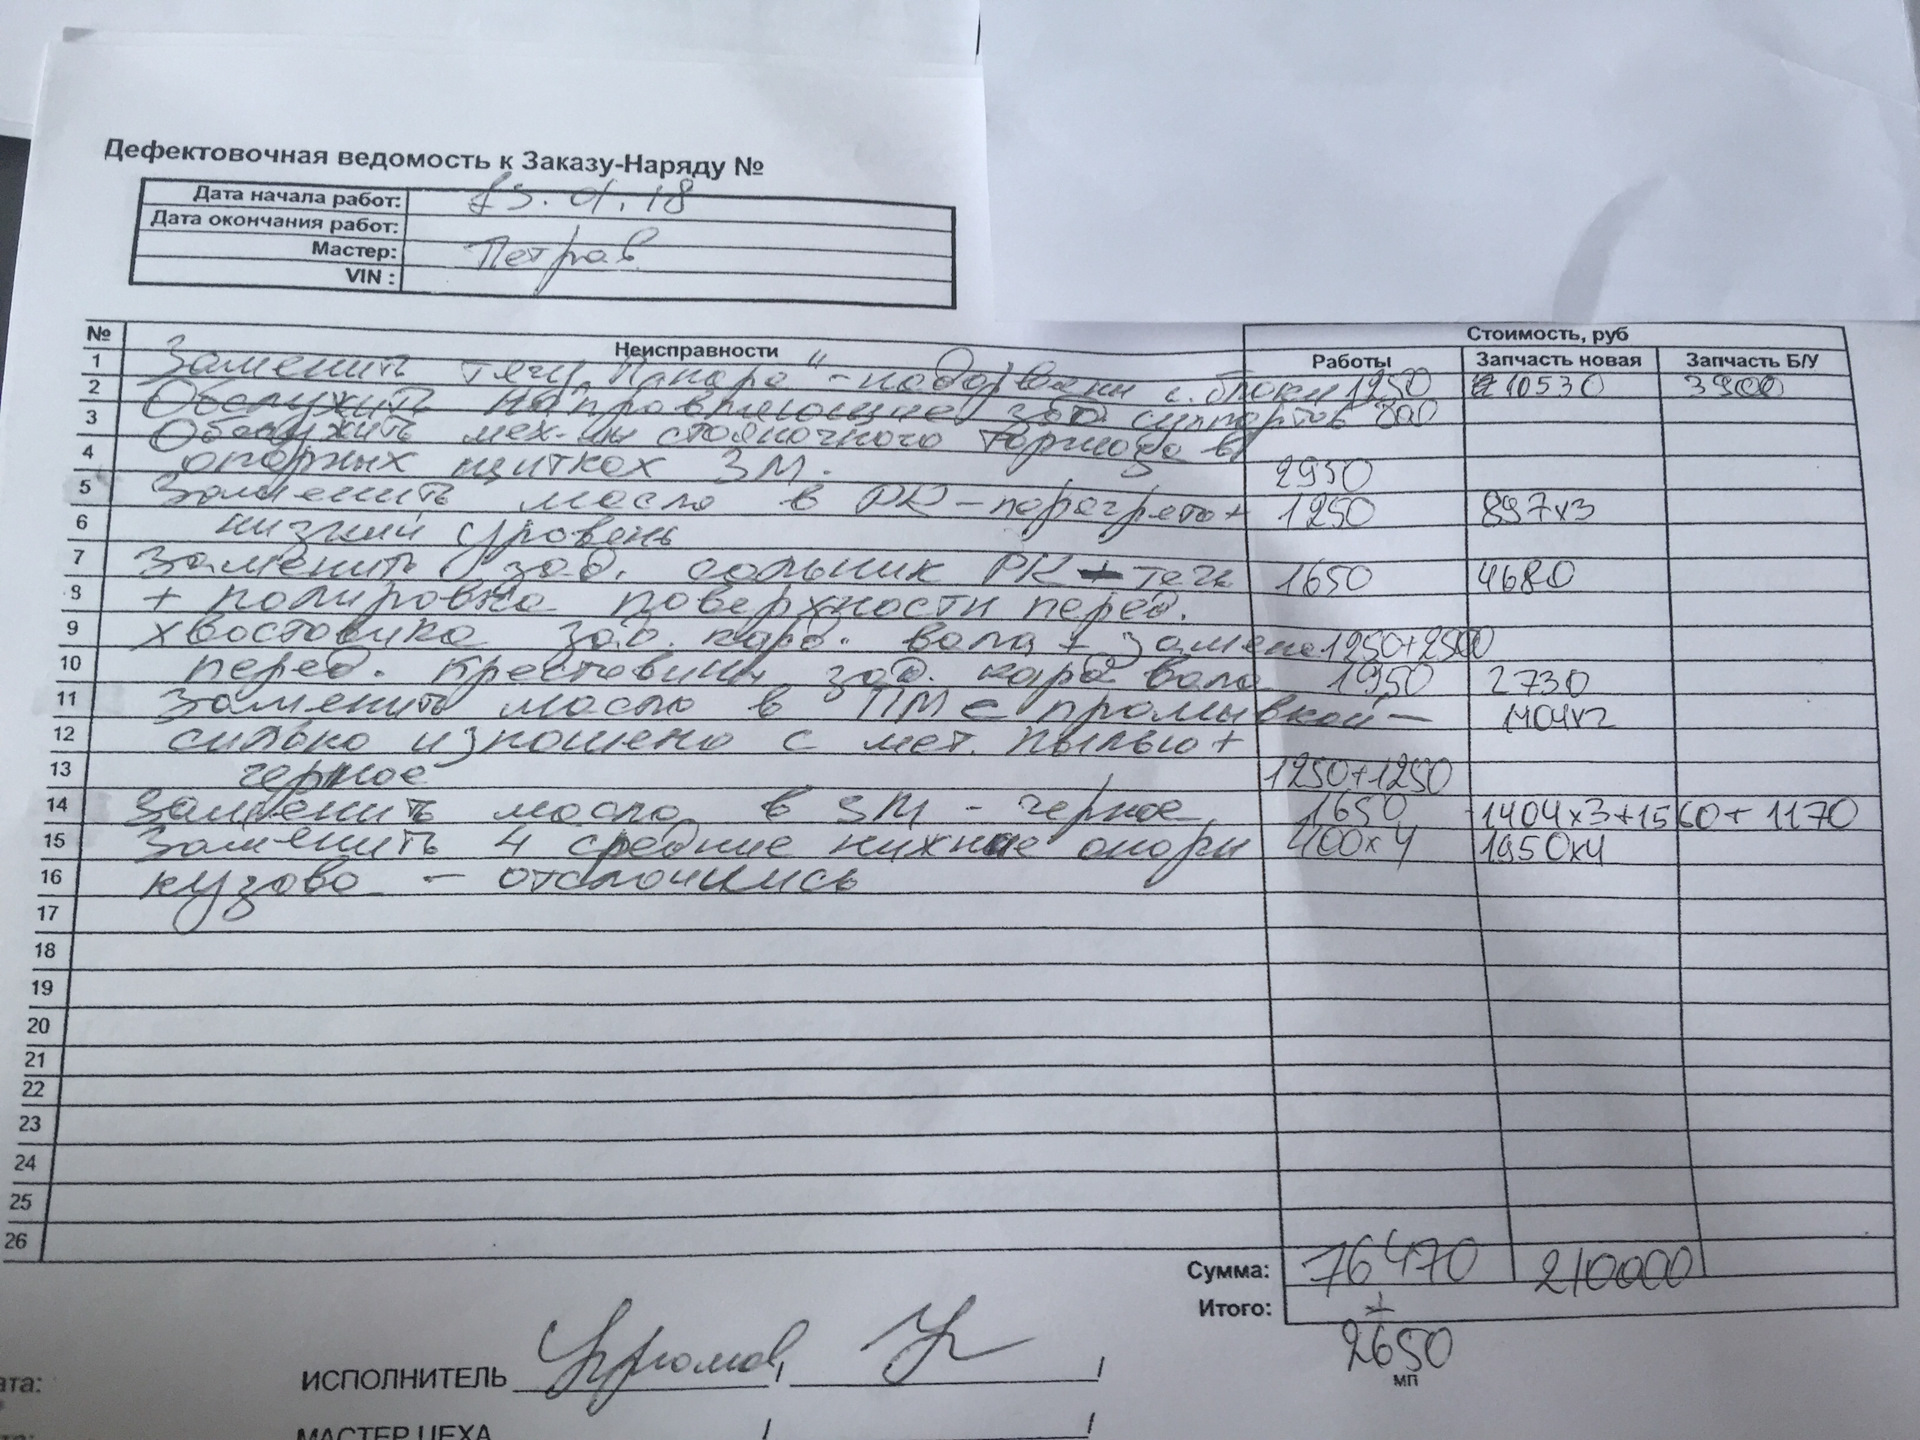 Дефектовочная ведомость к Заказу-Наряду №
Дата начала работ: 13.01.18
Дата окончания работ:
Мастер: Петров
VIN :
Стоимость, руб
№ Неисправности Работы Запчасть новая Запчасть Б/У
1 Заменить тягу "Панара" - надорваны с. блоки 1250 10530 3900
2 Обслужить направляющие зад. суппортов 800
3 Обслужить мех-мы стояночного тормоза в
4 опорных щитках ЗМ. 2950
5 Заменить масло в РК - перегрето + 1250 897х3
6 низкий уровень
7 Заменить зад. сальник РК - течь 1650 4680
8 + полировка поверхности перед.
9 хвостовика зад. кард. вала + замена 1250+2500
10 перед. крестовины зад. кард вала 1950 2730
11 Заменить масло в ПМ с промывкой - 1404х2
12 сильно изношено с мет. пылью +
13 черное 1250+1250
14 Заменить масло в ЗМ - черное 1650 1404х3+1560+1170
15 Заменить 4 средние нижние опоры 400х4 1950х4
16 кузова - отслоились
17
18
19
20
21
22
23
24
25
26
Сумма: 76470 210000
Итого: +
2650
МП
ИСПОЛНИТЕЛЬ
ата:
МАСТЕР ЦЕХА